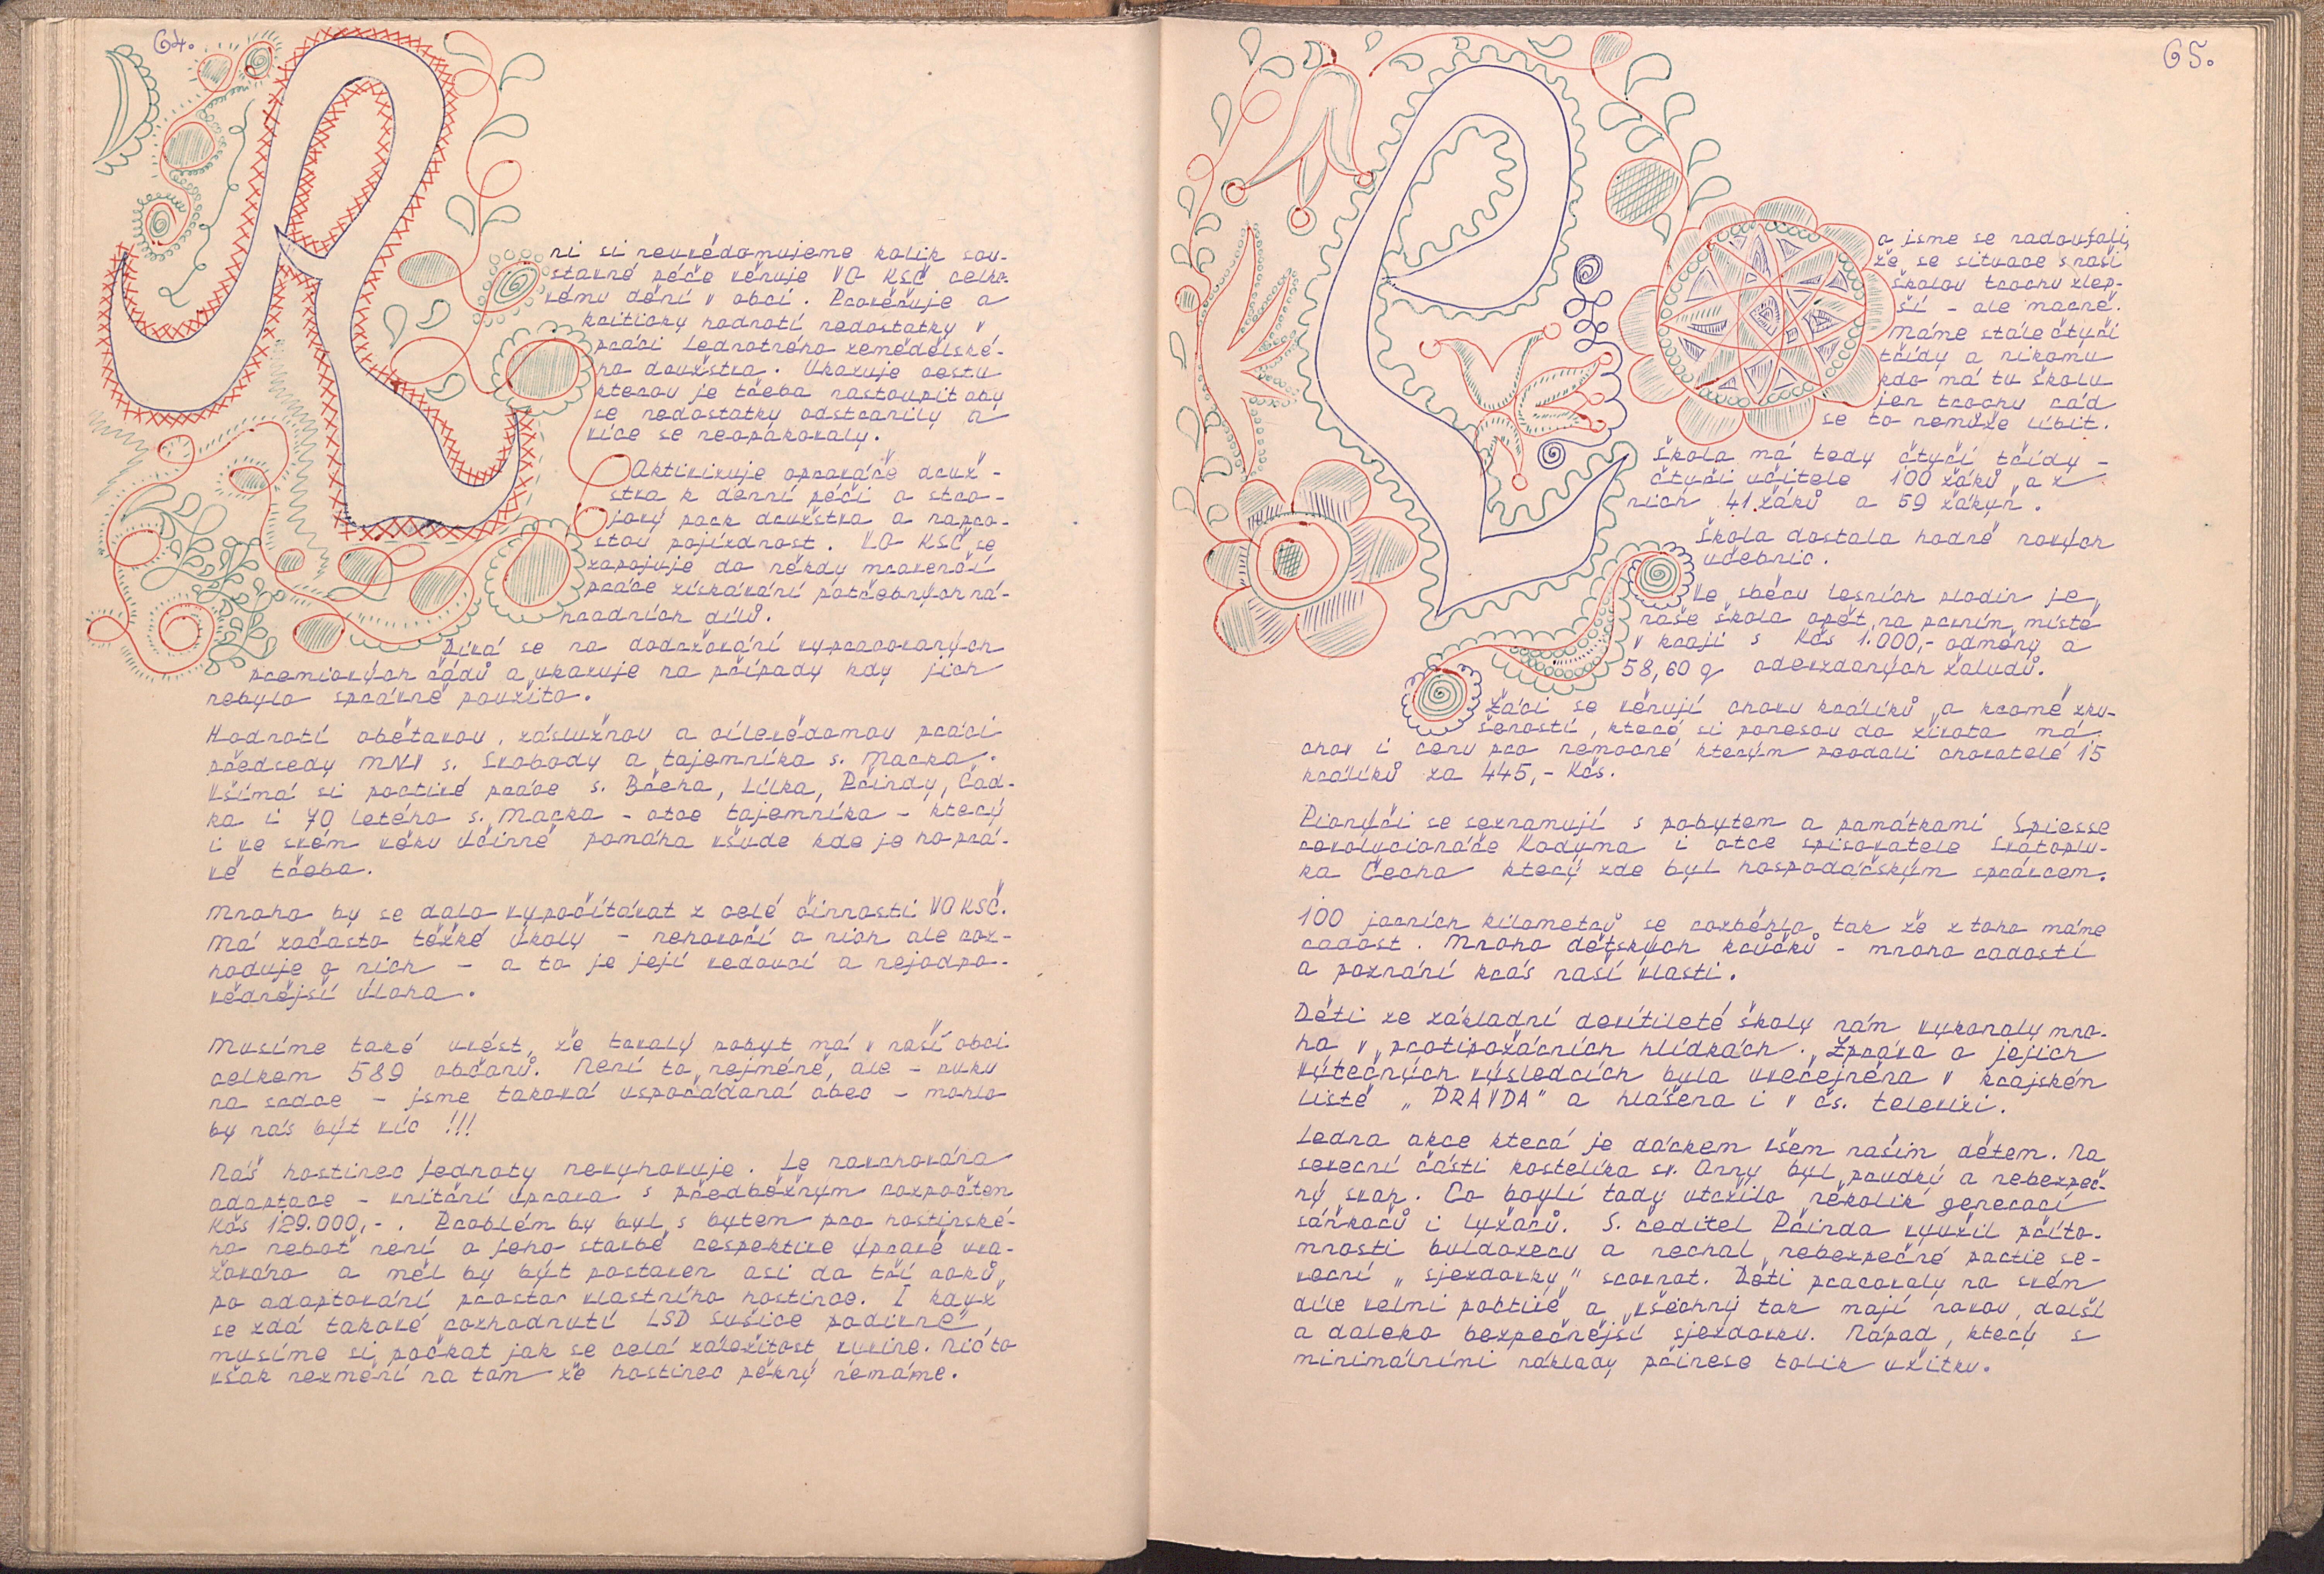 64.
A
ni si neuvědomujeme kolik sou-
stavné péče věnuje VO KSČ celko-
vému dění v obci. Prověřuje a
kriticky hodnotí nedostatky v
práci Jednotného zemědělské-
ho družstva. Ukazuje cestu
kterou je třeba nastoupit aby
se nedostatky odstranily a
více se neopakovaly.
Aktivizuje opraváře druž-
stva k denní péči o stro-
jový park družstva a napro-
stou pojízdnost. VO KSČ se
zapojuje do někdy mravenčí
práce získávání potřebných ná-
hradních dílů.
Dívá se na dodržování vypracovaných
premiových řádů a ukazuje na případy kdy jich
nebylo správně použito.
Hodnotí obětavou, záslužnou a cílevědomou práci
předsedy MNV s. Svobody a tajemníka s. Macka.
Všímá si poctivé práce s. Břeha, Lilka, Přindy, Rad-
ka i 70 letého s. Macka - otce tajemníka - který
i ve svém věku účinně pomáha všude kde je ho prá-
vě třeba.
Mnoho by se dalo vypočítávat z celé činnosti VO KSČ.
Má začasto těžké úkoly - nehovoří o nich ale roz-
hoduje o nich - a to je její vedoucí a nejodpo-
vědnější úloha.
Musíme také uvést, že trvalý pobyt má v naší obci
celkem 589 občanů. Není to nejméně, ale - ruku
na srdce - jsme taková uspořádaná obec - mohlo
by nás být víc !!!
Náš hostinec Jednoty nevyhovuje. Je navrhována
adaptace - vnitřní úprava s předběžným rozpočtem
Kčs 129.000,-. Problém by byl s bytem pro hostinské-
ho neboť není o jeho stavbě respektive úpravě uva-
žováno a měl by být postaven asi do tří roků
po adaptování prostor vlastního hostince. I když
se zdá takové rozhodnutí LSD Sušice podivné,
musíme si počkat jak se celá záležitost vyvine. Nic to
však nezmění na tom že hostinec pěkný nemáme.
65.
R
a jsme se radovali,
že se situace s naší
školou trochu zlep-
ší - ale marně.
Máme stále čtyři
třídy a nikomu
kdo má tu školu
jen trochu rád
se to nemůže líbit.
Škola má tedy čtyři třídy -
čtyři učitele 100 žáků a z
nich 41 žáků a 59 žákyň.
Škola dostala hodně nových
učebnic.
Ve sběru lesních plodin je
naše škola opět na prvním místě
v kraji s Kčs 1.000,- odměny a
58,60 q odevzdaných žaludů.
Žáci se věnují chovu králíků a kromě zku-
šeností, které si ponesou do života má
chov i cenu pro nemocné kterým prodali chovatelé 15
králíků za 445,- Kčs.
Pionýři se seznamují s pobytem a památkami Spiesse
revolucionáře Kodyma i otce spisovatele Svatoplu-
ka Čecha který zde byl hospodářským správcem.
100 jarních kilometrů se rozběhlo tak že z toho máme
radost. Mnoho dětských krůčků - mnoho radosti
a poznání krás naší vlasti.
Děti ze základní devítileté školy nám vykonaly mno-
ho v protipožárních hlídkách. Zpráva o jejich
výtečných výsledcích byla uveřejněna v krajském
listě „PRAVDA" a hlášena i v čs. televizi.
Jedna akce která je dárkem všem našim dětem. Na
severní části kostelíka sv. Anny byl prudký a nebezpeč-
ný svah. Co boylí tady utržilo několik generací
sáňkařů i lyžařů. S. ředitel Přinda využil příto-
mnosti buldozeru a nechal nebezpečné partie se-
verní „sjezdovky" srovnat. Děti pracovaly na svém
díle velmi poctivě a všechny tak mají novou, delší
a daleko bezpečnější sjezdovku. Nápad, který s
minimálními náklady přinese tolik užitku.